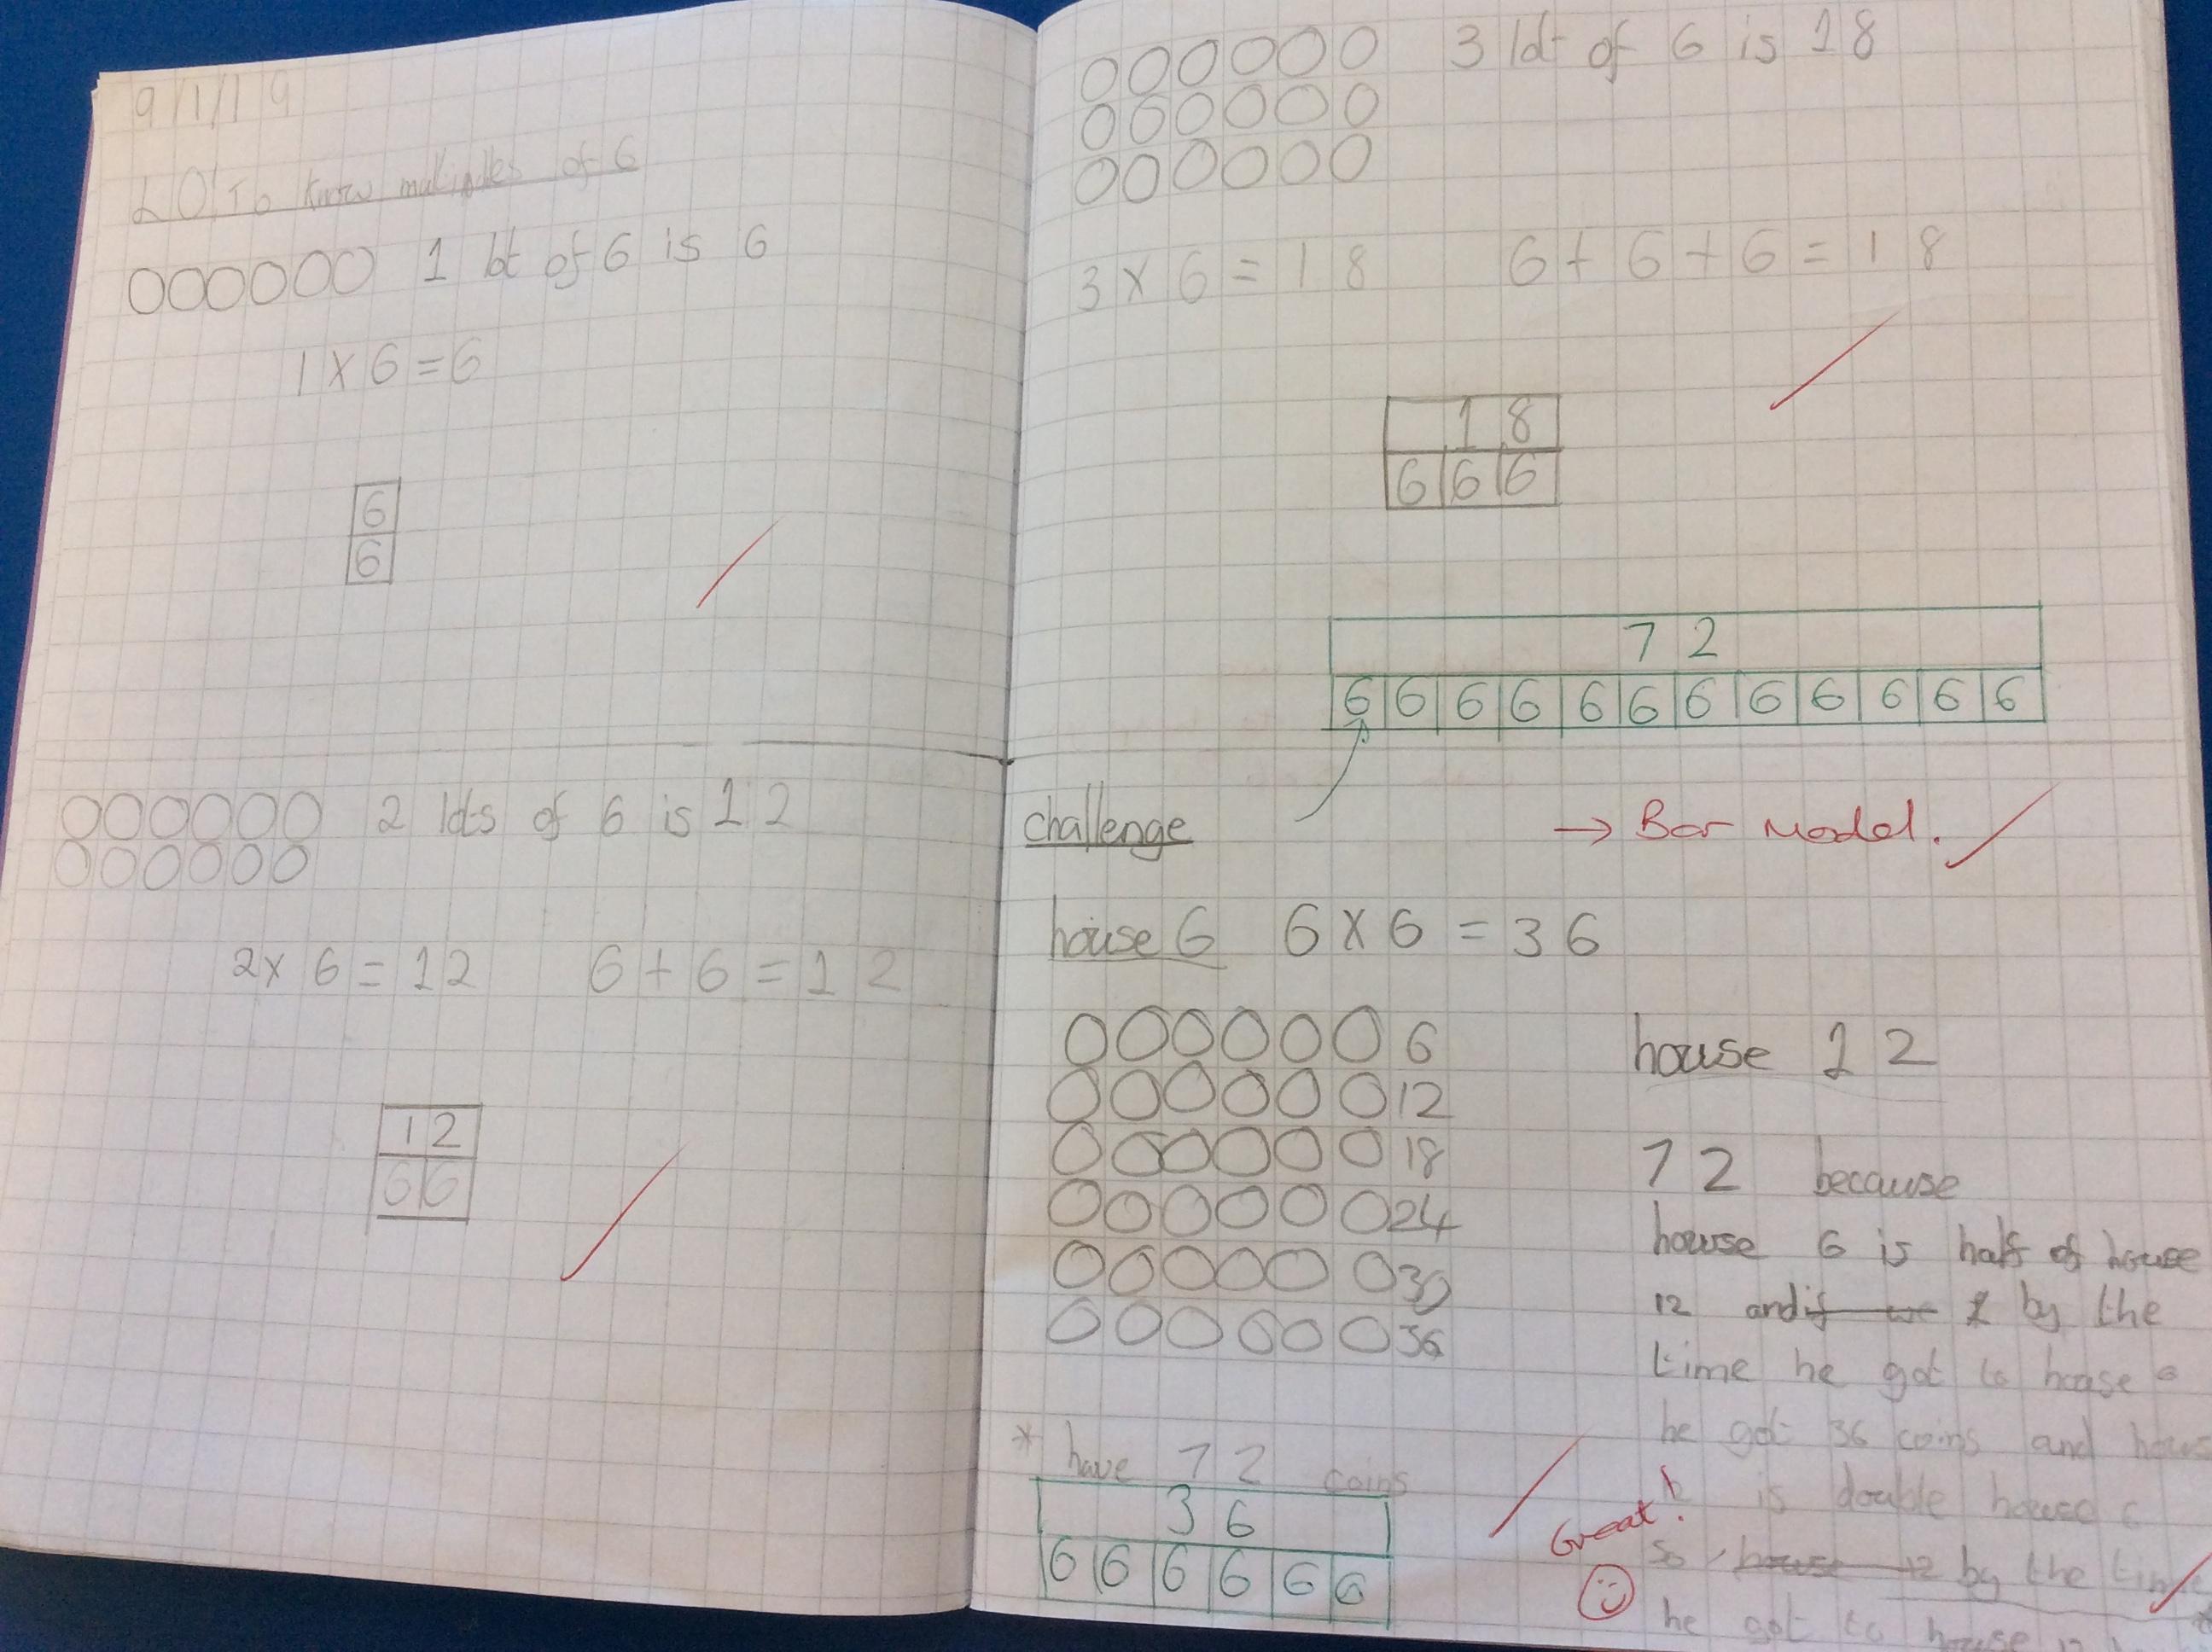 9/1/19
LO: To know multiples of 6
1 lot of 6 is 6
1 x 6 = 6
6
6
2 lots of 6 is 12
2 x 6 = 12 6 + 6 = 12
12
6 6
3 lot of 6 is 18
3 x 6 = 18 6 + 6 + 6 = 18
18
6 6 6
72
6 6 6 6 6 6 6 6 6 6 6 6
challenge
→ Bar Model.
house 6 6 x 6 = 36
6
12
18
24
30
36
* have 72 coins
36
6 6 6 6 6 6
house 12
72 because
house 6 is half of house
12 and if we by the
time he got to house
he got 36 coins and
12 is double house 6
so house 12 by the time
he got to house
Great!